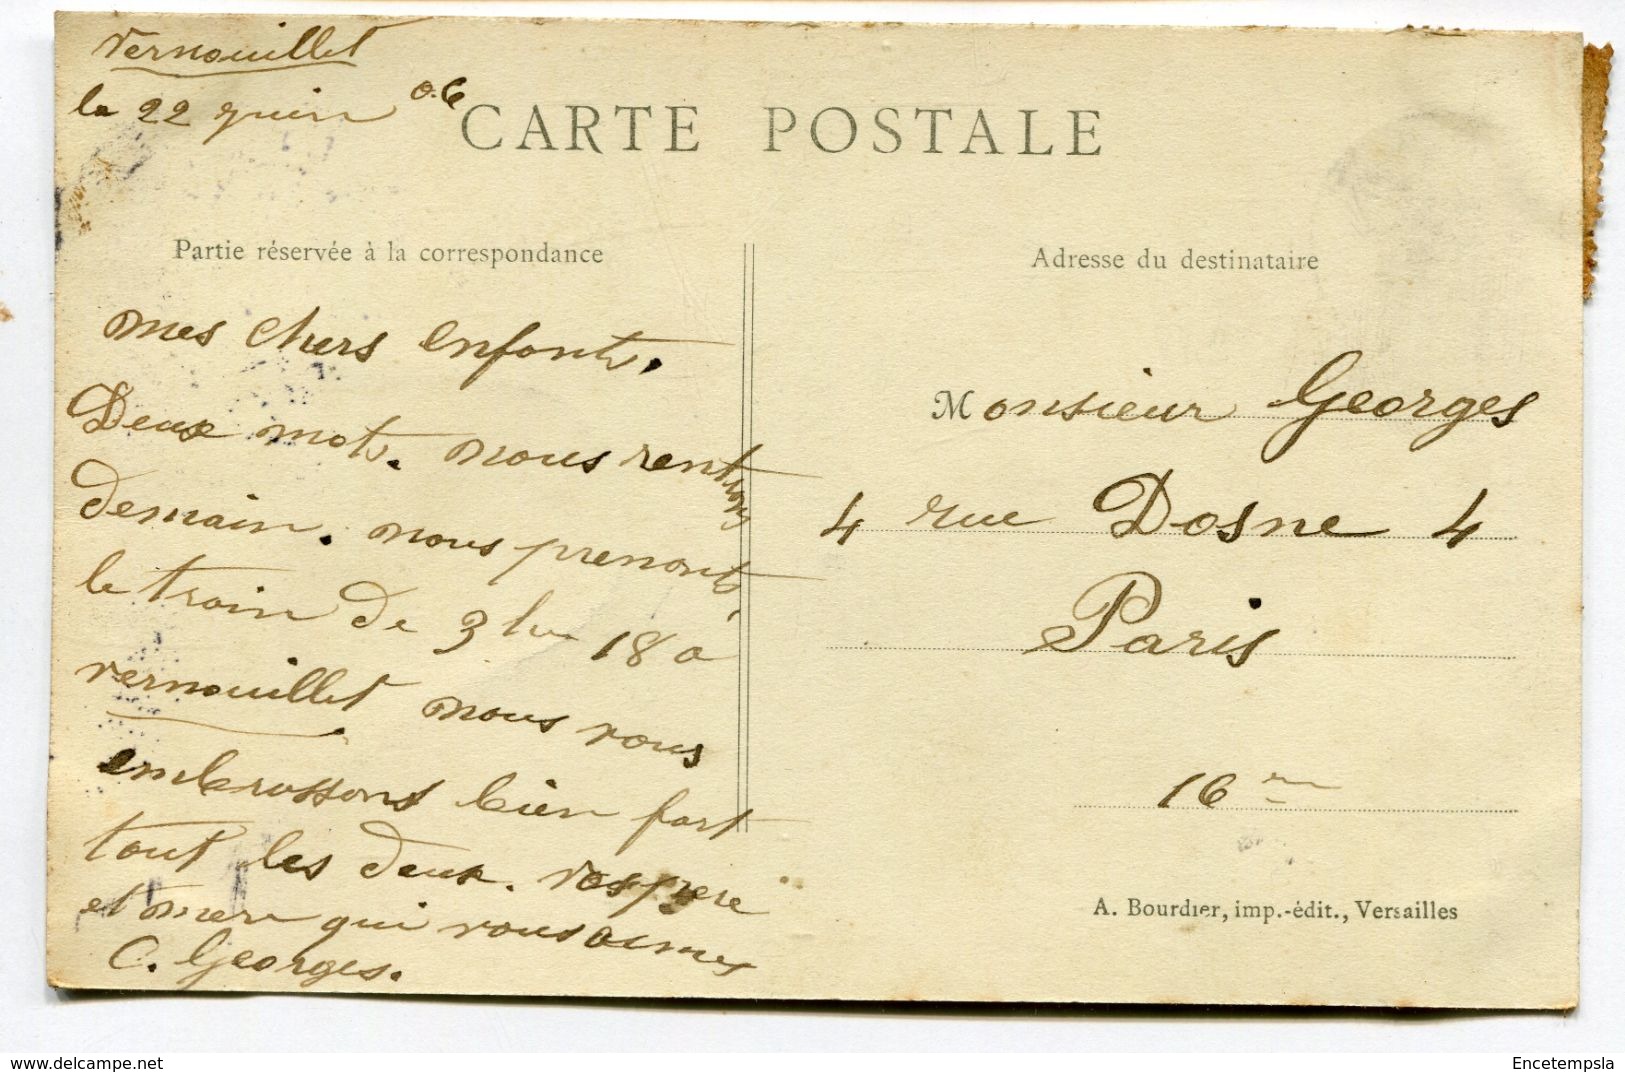 Vernouillet
le 22 juin 06
CARTE POSTALE
Partie réservée à la correspondance
Adresse du destinataire
mes chers enfants.
Deux mots. nous rentrons
demain. nous prenonts
le train de 3 hr 18 à
vernouillet nous vous
embrassons bien fort
tout les deux. vos pere
et mere qui vous aimes
C. Georges.
Monsieur Georges
4 rue Dosne 4
Paris
16 me
A. Bourdier, imp.-édit., Versailles
https://www.delcampe.net
Encetempsla